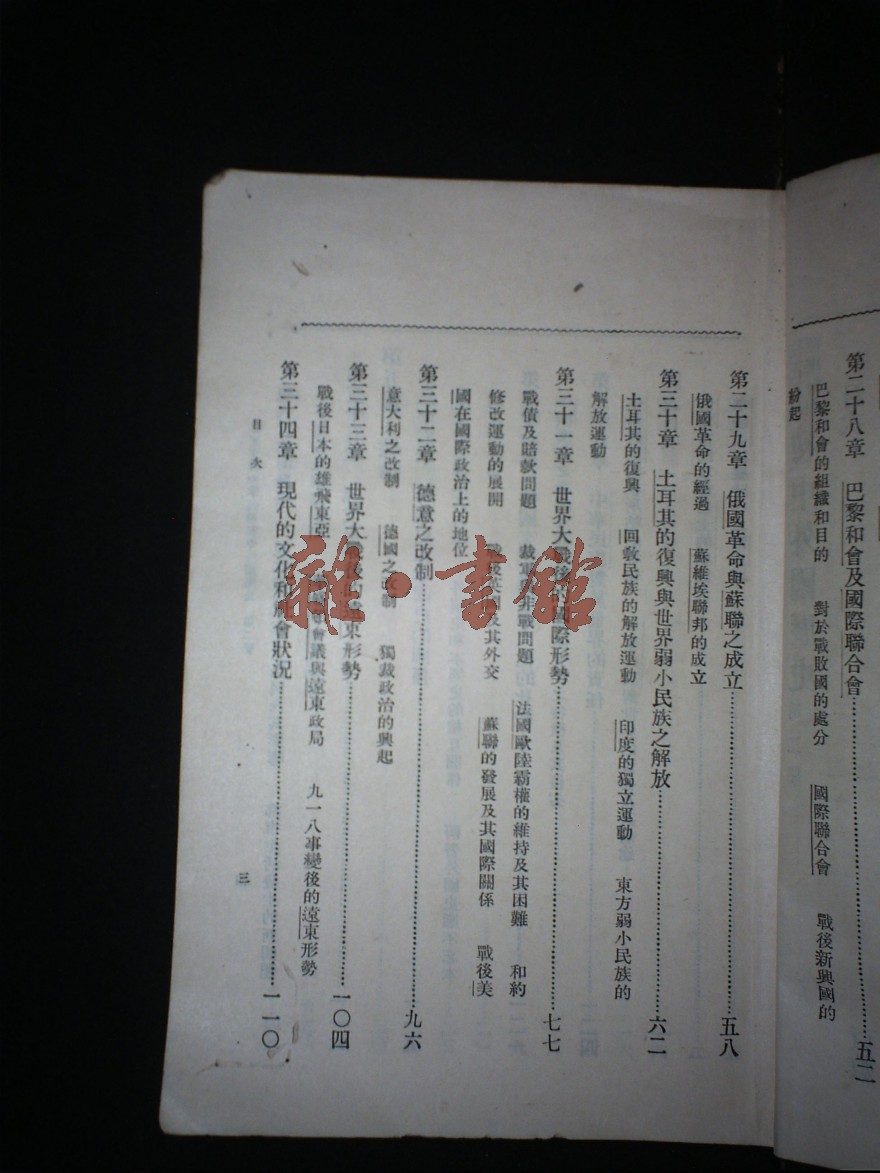 第二十八章 巴黎和會及國際聯合會……五二
巴黎和會的組織和目的 對於戰敗國的處分 國際聯合會 戰後新興國的
紛起
第二十九章 俄國革命與蘇聯之成立……五八
俄國革命的經過 蘇維埃聯邦的成立
第三十章 土耳其的復興與世界弱小民族之解放……六二
土耳其的復興 回教民族的解放運動 印度的獨立運動 東方弱小民族的
解放運動
第三十一章 世界大戰後的國際形勢……七七
戰債及賠款問題 裁軍 非戰問題 法國歐陸霸權的維持及其困難 和約
修改運動的展開 戰後英國及其外交 蘇聯的發展及其國際關係 戰後美
國在國際政治上的地位
第三十二章 德意之改制……九六
意大利之改制 德國之改制 獨裁政治的興起
第三十三章 世界大戰後的遠東形勢……一〇四
戰後日本的雄飛東亞 會議與遠東政局 九一八事變後的遠東形勢
第三十四章 現代的文化和社會狀況……一一〇
目次
三
雜·書館